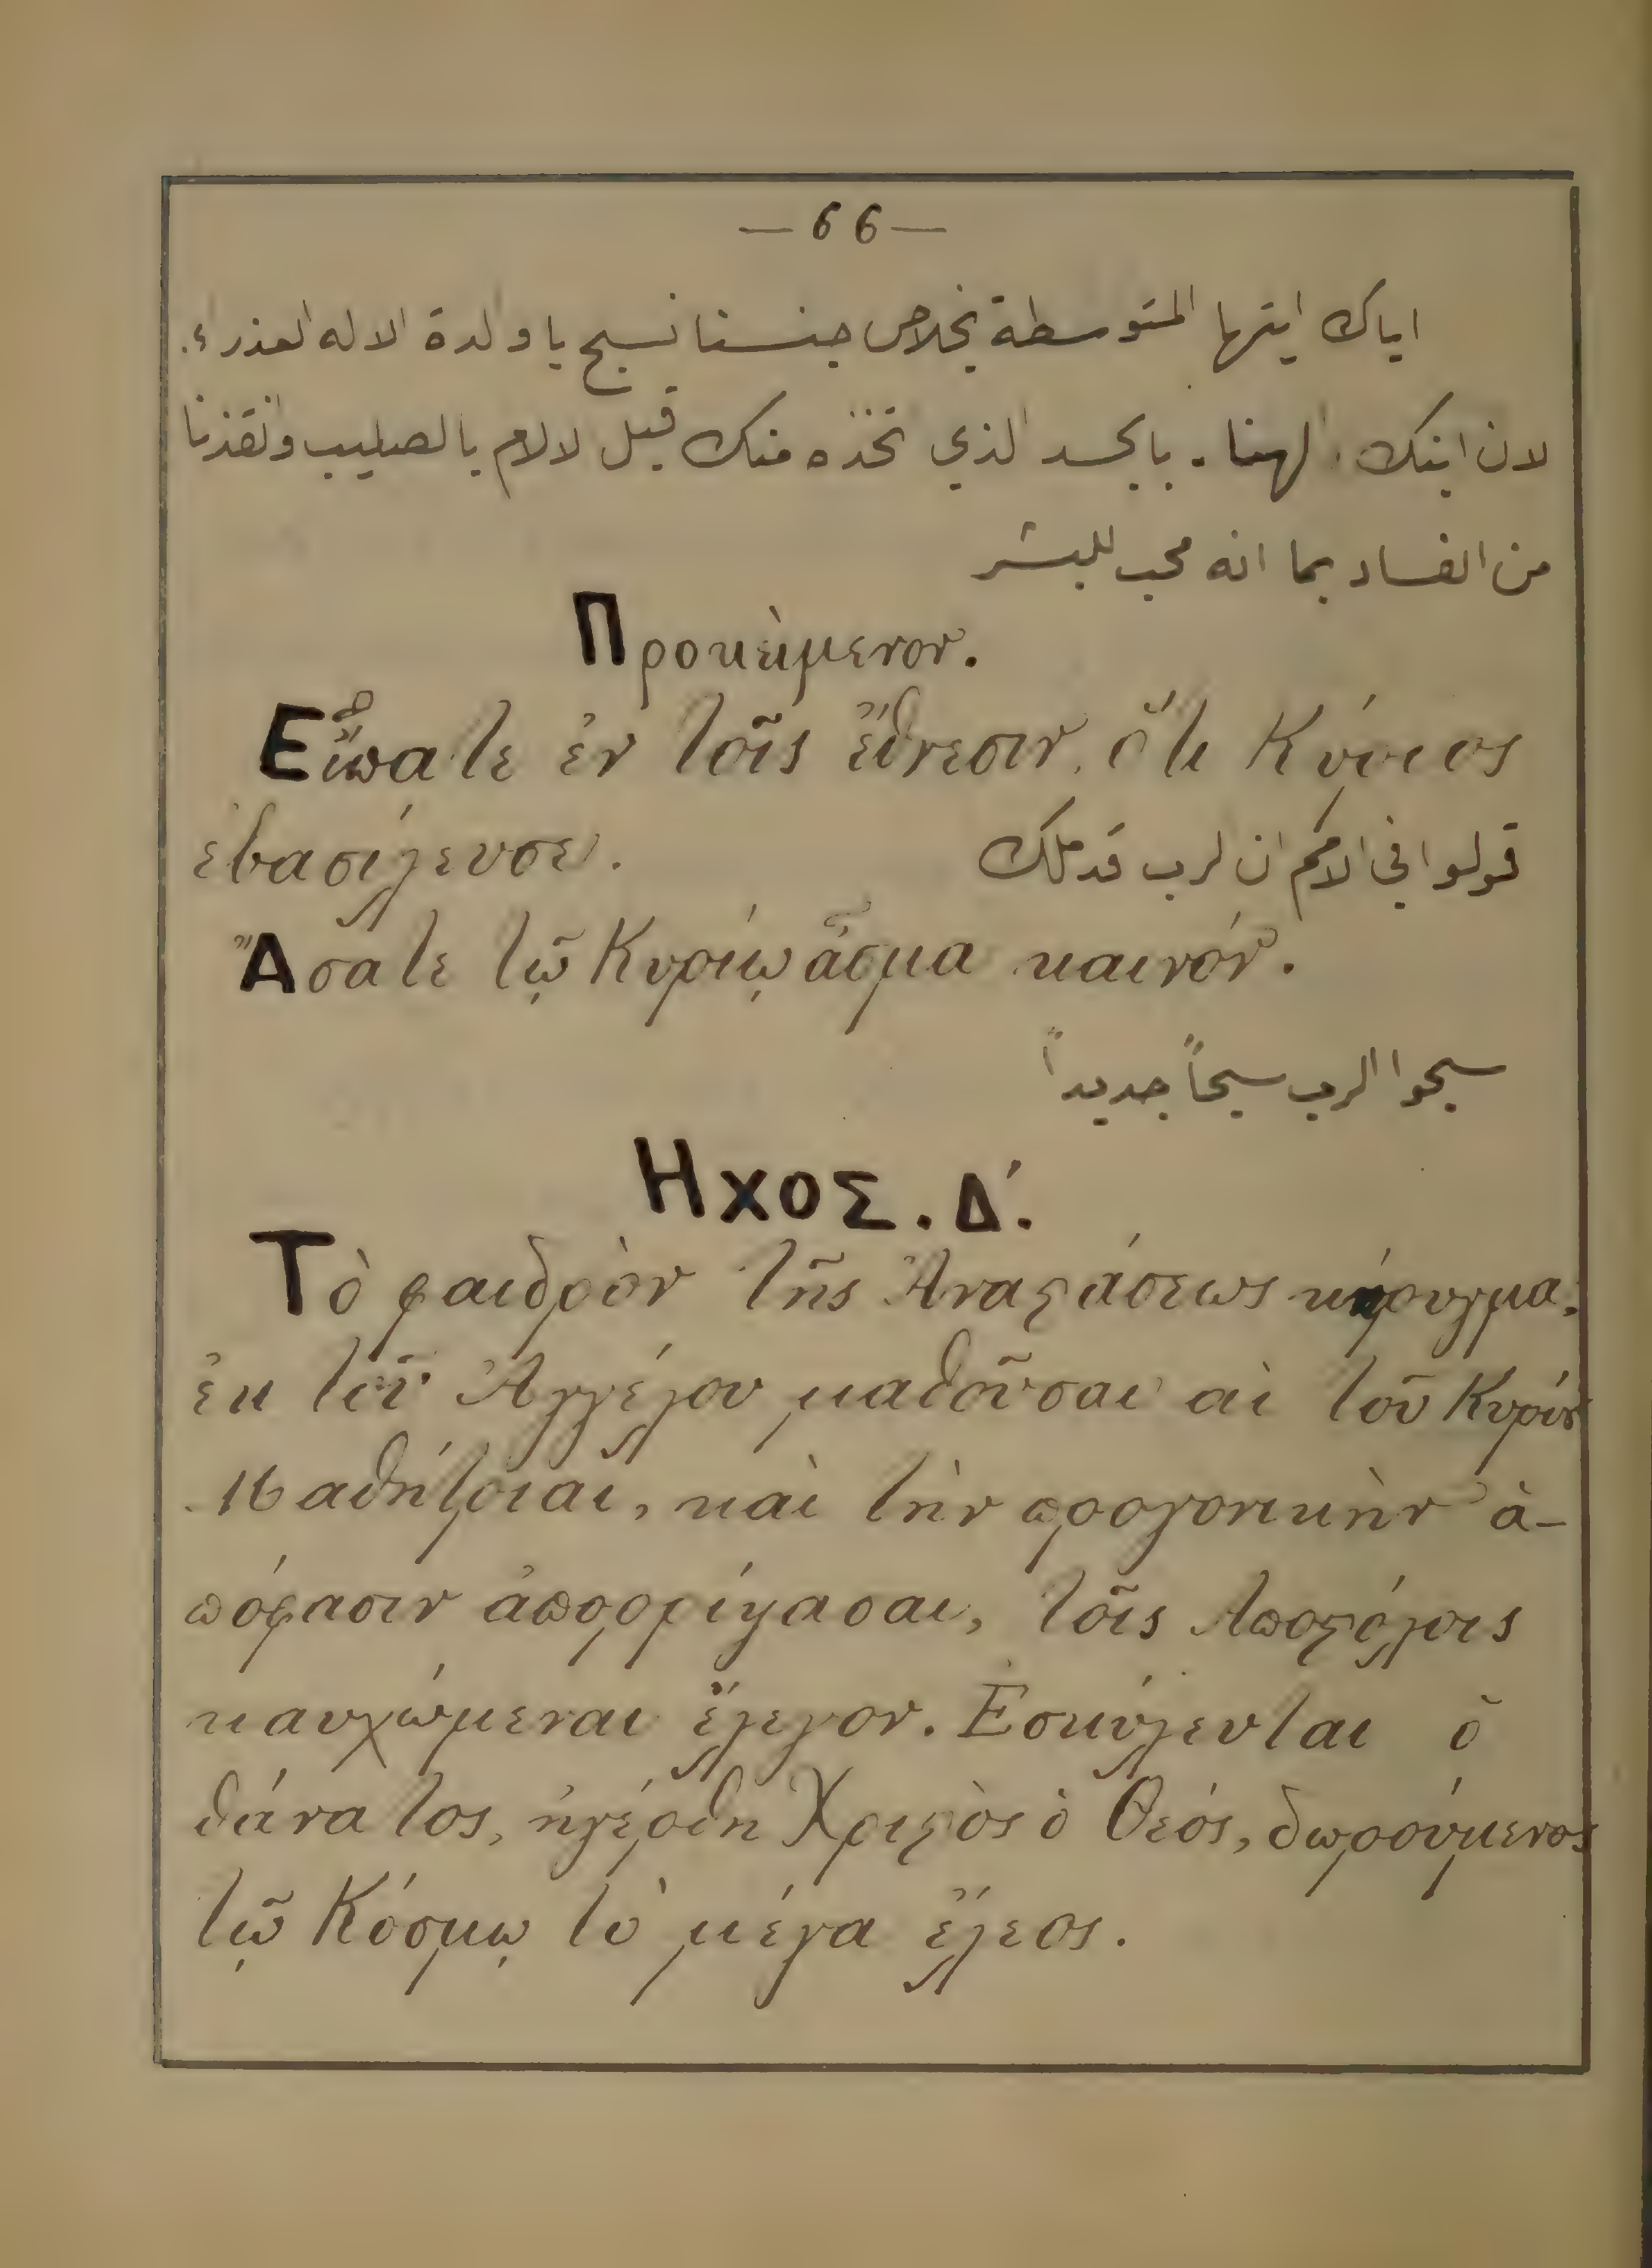 — 66 —
اياك ايتها المتوسطة بخلاص جنسنا نسبح يا والدة الاله العذراء.
لان ابنك الهنا. بالجسد الذي اتخذه منك قبل الالام بالصليب وانقذنا
من الفساد بما انه محب للبشر
Προκείμενον.
Εἴπατε ἐν τοῖς ἔθνεσιν, ὅτι Κύριος
ἐβασίλευσεν. قولوا في الامم ان الرب قد ملك
ᾌσατε τῷ Κυρίῳ ᾆσμα καινόν.
سبحوا الرب تسبيحاً جديداً
Ηχος. Δ΄.
Τὸ φαιδρὸν τῆς Ἀναϛάσεως κήρυγμα,
ἐκ τοῦ Ἀγγέλου μαθοῦσαι αἱ τοῦ Κυρίου
Μαθήτριαι, καὶ τὴν προγονικὴν ἀ-
πόφασιν ἀποῤῥίψασαι, τοῖς Ἀποϛόλοις
καυχώμεναι ἔλεγον. Ἐσκύλευται ὁ
θάνατος, ἠγέρθη Χριϛὸς ὁ Θεός, δωρούμενος
τῷ Κόσμῳ τὸ μέγα ἔλεος.